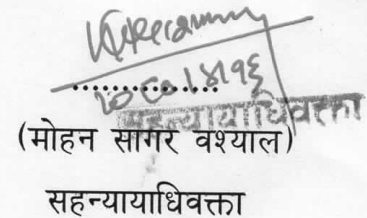 सहन्यायाधिवक्ता
(मोहन सागर वश्याल)
सहन्यायाधिवक्ता